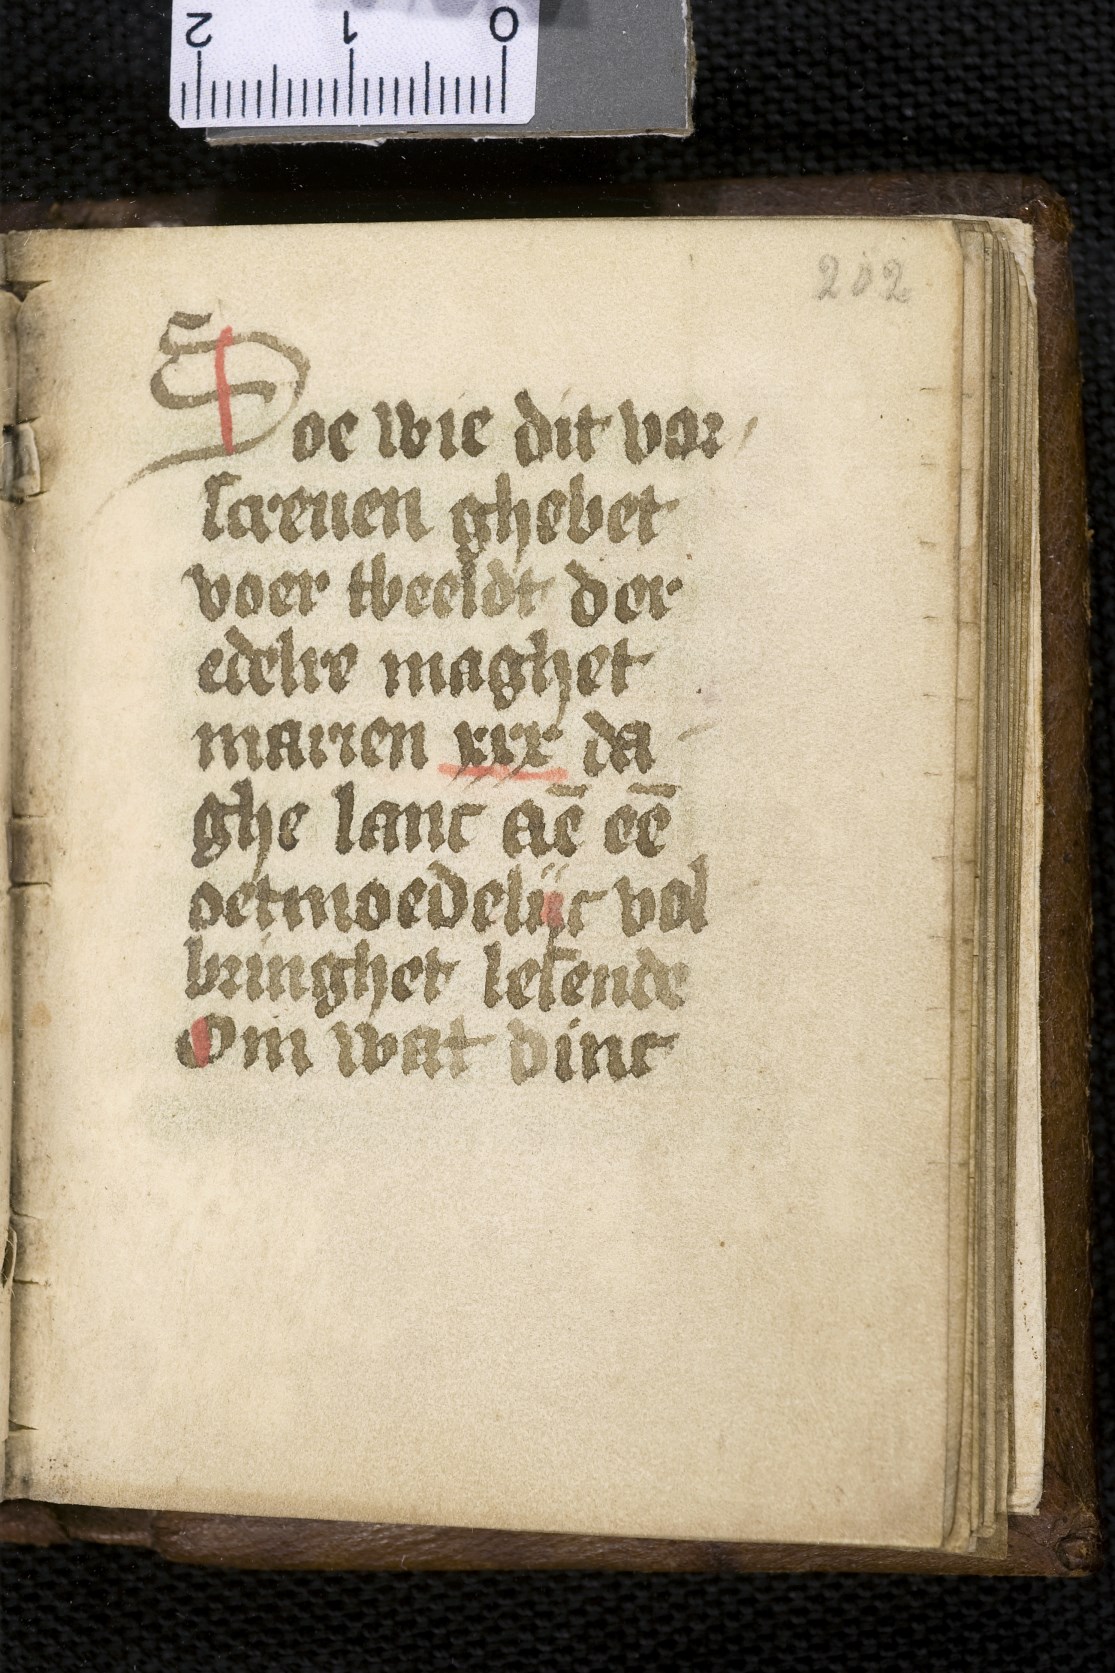 2 1 0
202
Soe wie dit vor
screuen ghebet
voer tbeeldt der
edelre maghet
marien xxx da
ghe lanc aē eē
oetmoedelijc vol
bringhet lesende
Om wat dinc